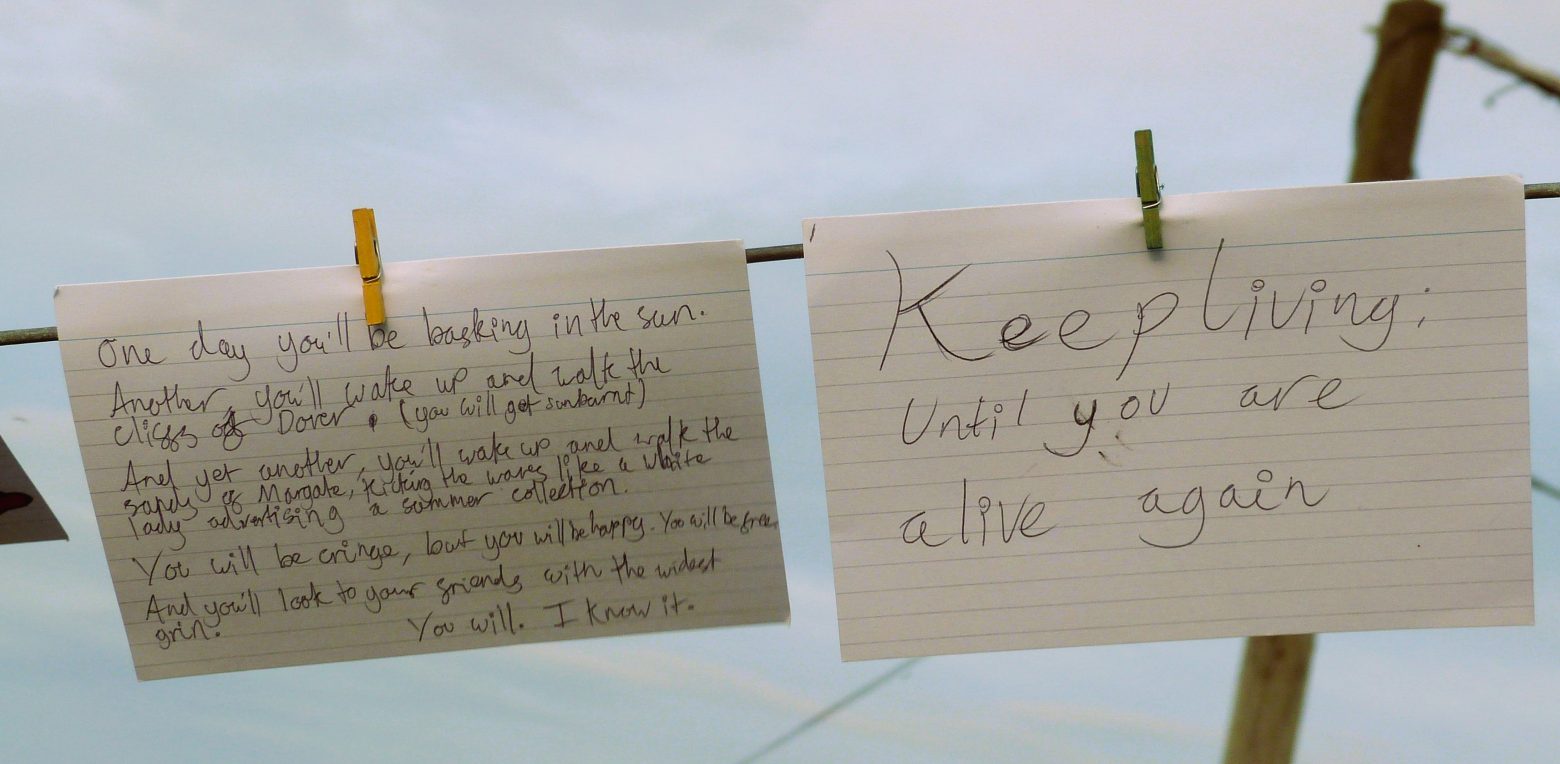 One day you'll be basking in the sun.
Another, you'll wake up and walk the
cliffs of Dover. (you will get sunburnt)
And yet another, you'll wake up and walk the
sands of Margate, kicking the waves like a white
lady advertising a summer collection.
You will be cringe, but you will be happy. You will be free.
And you'll look to your friends with the widest
grin. You will. I know it.
Keep living;
Until you are
alive again